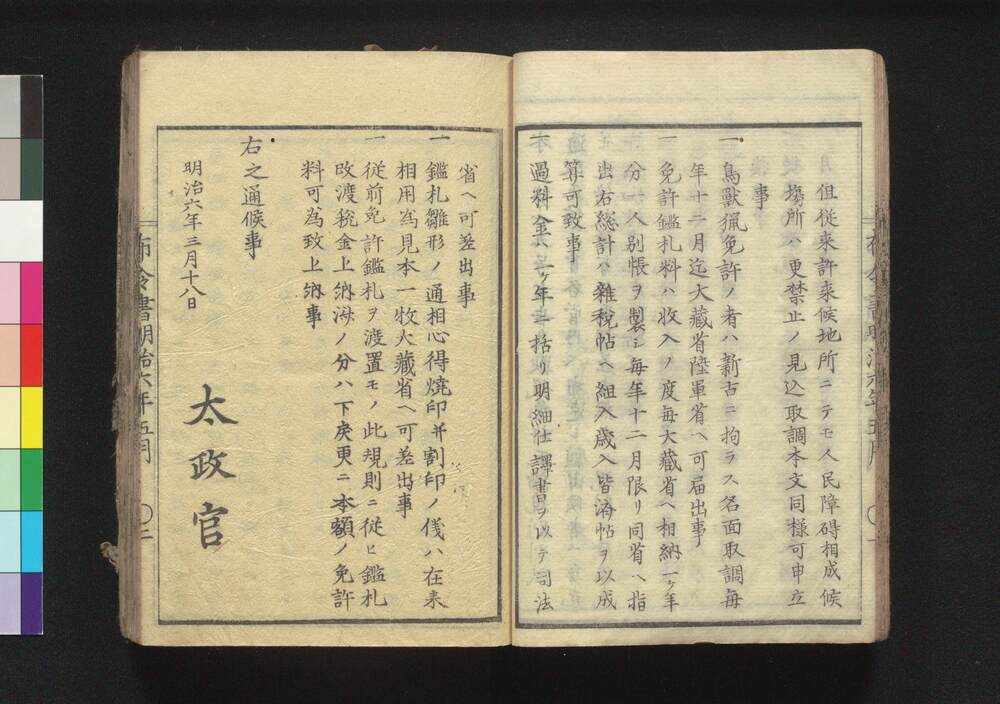 但從来許来候地所ニテモ人民障碍相成候
塲所ハ更禁止ノ見込取調本文同様可申立
事
一鳥獸猟免許ノ者ハ新古ニ拘ラス名面取調毎
年十二月迄大藏省陸軍省ヘ可届出事
一免許鑑札料ハ收入ノ度毎大藏省ヘ相納一ヶ年
分一人別帳ヲ製シ毎年十二月限リ同省ヘ指
出右総計ハ雜税帖ヘ組入歳入皆済帖ヲ以成
算可致事
一過料金ハ一ヶ年ニ括リ明細仕譯書ヲ以テ司法
省ヘ可差出事
一鑑札雛形ノ通相心得燒印并割印ノ儀ハ在来
相用為見本一枚大藏省ヘ可差出事
一從前免許鑑札ヲ渡置モノ此規則ニ從ヒ鑑札
改渡税金上納済ノ分ハ下戻更ニ本額ノ免許
料可為致上納事
右之通候事
明治六年三月十八日
太政官
布令書明治六年五月
〇二